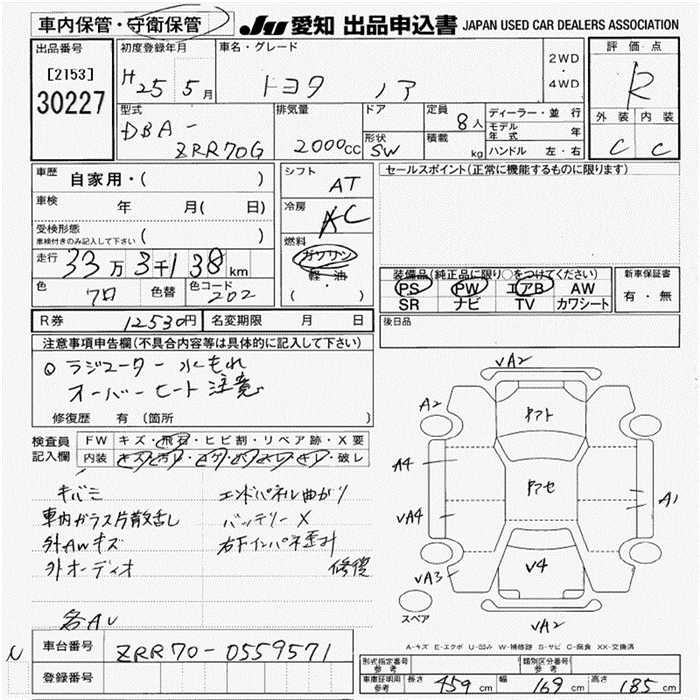 車内保管・守衛保管
JU 愛知 出品申込書 JAPAN USED CAR DEALERS ASSOCIATION
出品番号
[2153]
30227
初度登録年月
H25 5月
車名・グレード
トヨタ ノア
2WD
・
4WD
評価点
R
外装 内装
C C
型式
DBA-
ZRR70G
排気量
2000cc
ドア
形状
SW
定員
8人
積載
kg
ディーラー・並行
モデル年式 年
ハンドル 左・右
車歴 自家用・( )
車検 年 月( 日)
受検形態
車検付きのみ記入して下さい ( )
走行 33万3千138km
色 クロ 色替 色コード 202
シフト
AT
冷房
AC
燃料
ガソリン
・
軽・油
( )
セールスポイント(正常に機能するものに限ります)
装備品(純正品に限り○をつけてください)
PS PW エアB AW
SR ナビ TV カワシート
新車保証書
有・無
R券 12530円 名変期限 月 日
後日品
注意事項申告欄(不具合内容等は具体的に記入して下さい)
○ラジエーター 水もれ
オーバーヒート注意
修復歴 有 (箇所 )
検査員記入欄
FW キズ・飛石・ヒビ割・リペア跡・X要
内装 キズ・汚れ・コゲ・穴・スレ・キレ・破レ
キバミ
車内ガラス片散乱し
外AWキズ
外オーディオ
各AU
エンドパネル曲がり
バッテリーX
右下インパネ歪み
修復
VA2
A2
A4
VA4
VA3
VA2
A1
V4
スペア
A-キズ E-エクボ U-凹み W-補修跡 S-サビ C-腐食 XX-交換済
車台番号 ZRR70-0559571
登録番号
形式指定番号 参考
類別区分番号 参考
車庫証明用 参考 長さ 459cm 幅 169cm 高さ 185cm